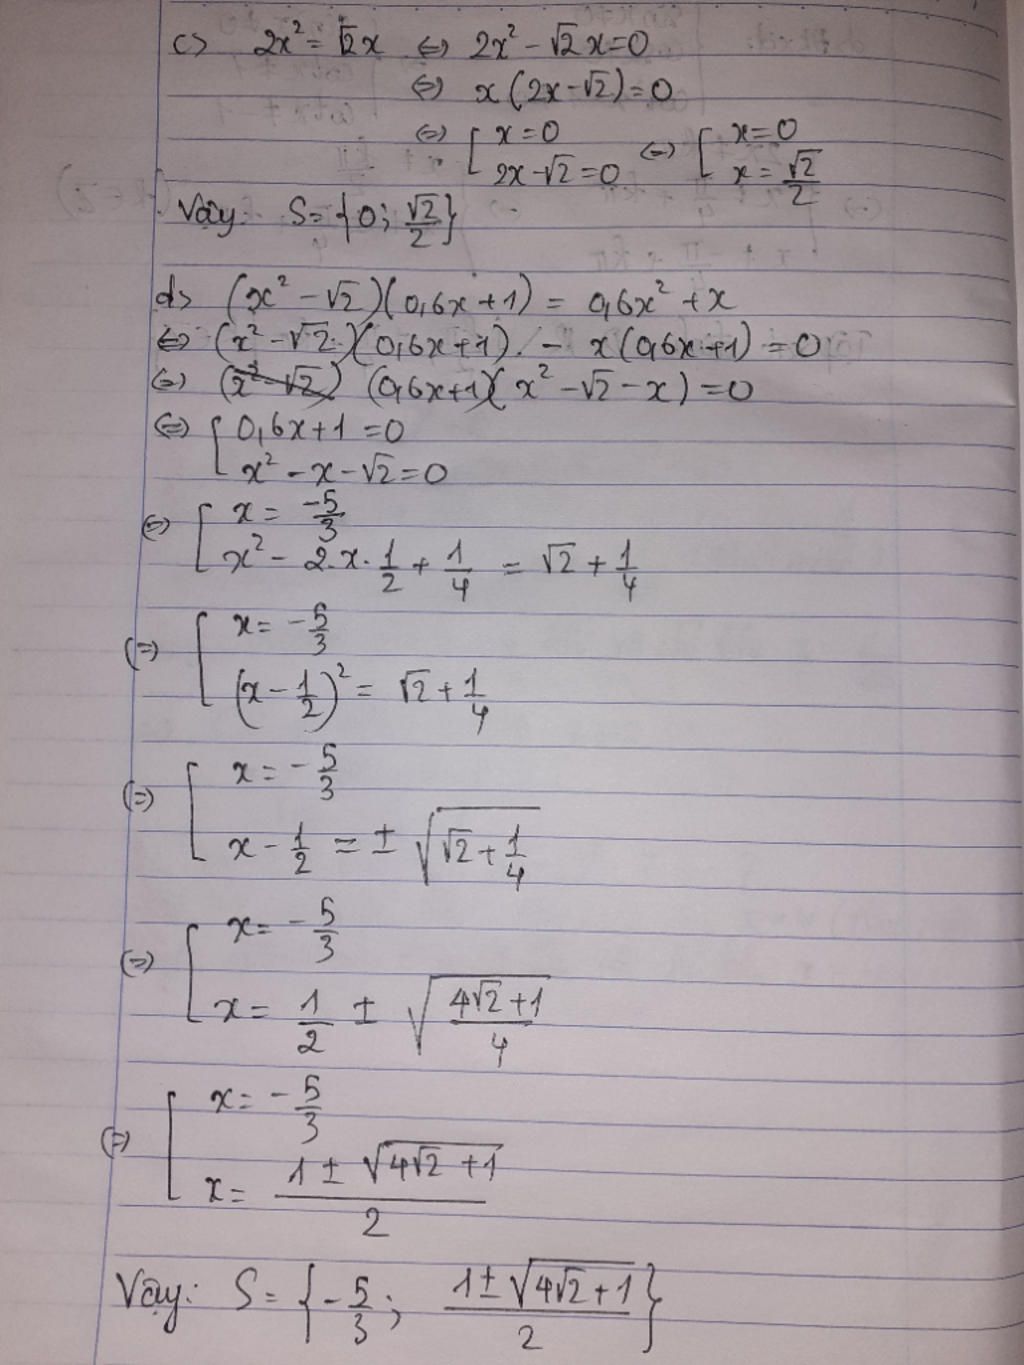 c> 2x² = √2x ⇔ 2x² - √2x = 0
⇔ x(2x - √2) = 0
⇔ [ x = 0 ⇔ [ x = 0
2x - √2 = 0 x = √2/2
Vậy: S = {0; √2/2}
d> (x² - √2)(0,6x + 1) = 0,6x² + x
⇔ (x² - √2)(0,6x + 1) - x(0,6x + 1) = 0
⇔ (x² - √2) (0,6x + 1)(x² - √2 - x) = 0
⇔ [ 0,6x + 1 = 0
x² - x - √2 = 0
⇔ [ x = -5/3
x² - 2.x.1/2 + 1/4 = √2 + 1/4
⇔ [ x = -5/3
(x - 1/2)² = √2 + 1/4
⇔ [ x = -5/3
x - 1/2 = ± √(√2 + 1/4)
⇔ [ x = -5/3
x = 1/2 ± √((4√2 + 1)/4)
⇔ [ x = -5/3
x = (1 ± √(4√2 + 1))/2
Vậy: S = {-5/3; (1 ± √(4√2 + 1))/2}